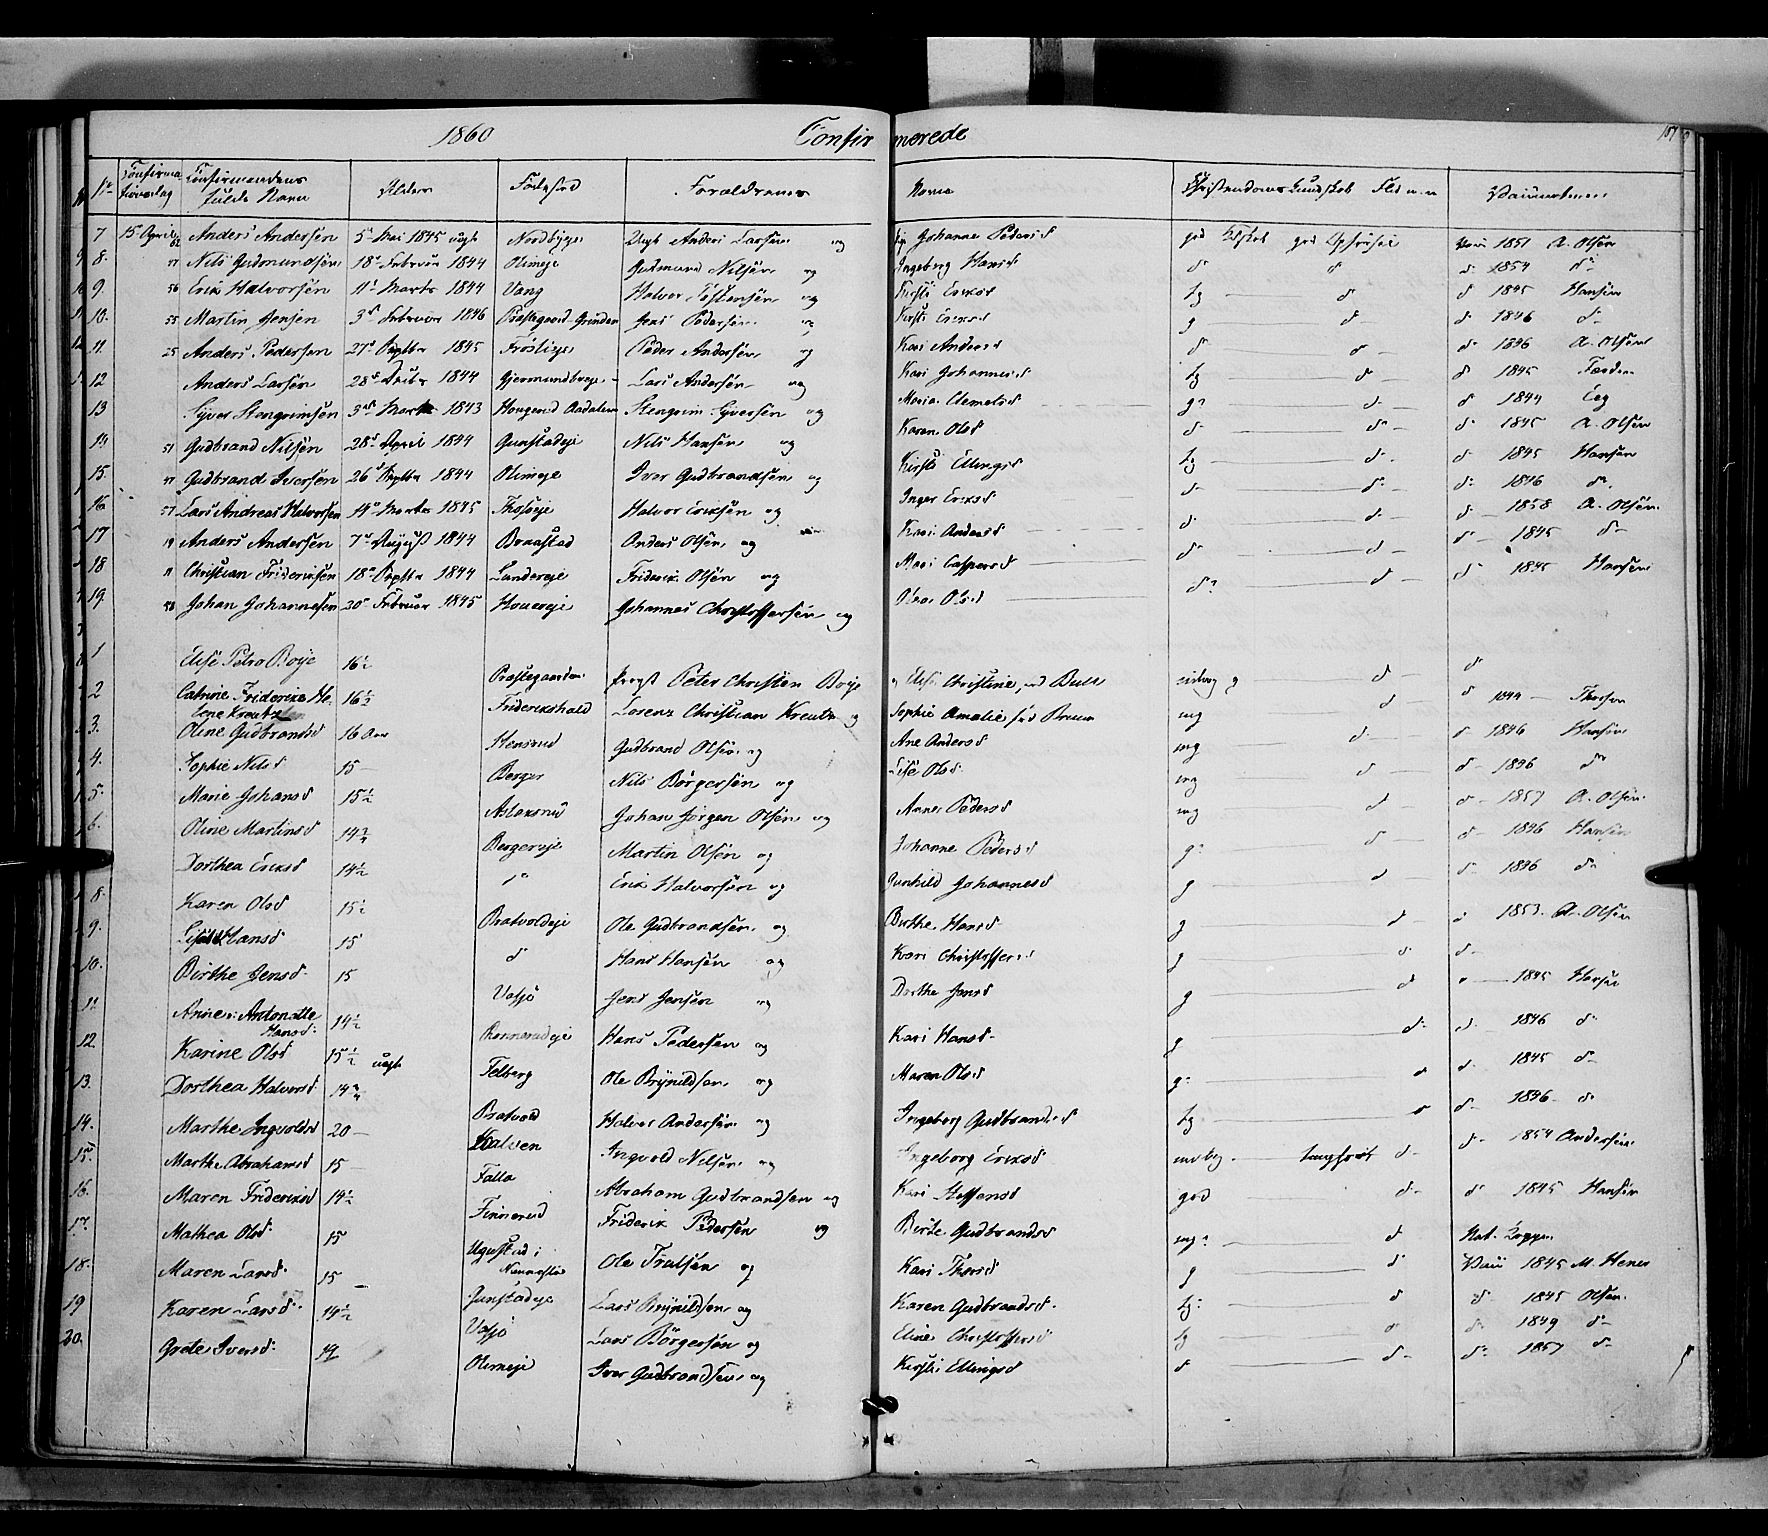 1860 Confirmerede 187
No Confirmationsdag Confirmandens fulde Navn Alder Fødested Forældrenes Navne Christendoms Kundskab Flid Vaccinationen
7 15 April 62 Anders Andersen 5 Mai 1845 uægte Nordbyeje Anders Larsen og Johanne Pedersd god 1851 A. Olsen
8 Nils Gudmundsen 18 Februar 1844 Olimeje Gudmund Nilsen og Ingeborg Hansd d d d 1854 d
9 56 Erik Halvorsen 11 Marts 1844 Vang Halvor og Kirsti Eriksd tg d d 1845 Hansen
10. 55 Martin Jensen 3 Februar 1846 Præstegaard Jens Pedersen og Kirsti Eriksd g d d 1846 d
11. 25 Anders Pedersen 27 Septbr 1845 Peder Andersen og Kari Andersd d d d A. Olsen
12 Anders Larsen 28 1844 Gjermundboeje Lars Andersen og Kari Johannesd tg d d 1845
13 Syver Stengrimsen 3 Marts 1843 Hougerud Aadalen Stengrim Syversen og Maria Clemetsd g d d 1844
14 51 Gudbrand Nilsen 28 April 1844 Gunstadeje Nils Hansen og Karen Olsd d d d 1845 A. Olsen
15. Gudbrand Iversen 26 Septbr 1844 Olimeje Iver Gudbrandsen og Kirsti Ellingsd tg d d 1845 Hansen
16. 57 Lars Andreas Halvorsen 14 Marts 1845 Halvor Eriksen og Inger Eriksd d d d 1846 d
17 19 Anders Andersen 7 August 1844 Braastad Anders Olsen og Kari Andersd d d d 1858 A. Olsen
18 Christian Frideriksen 18 Septbr 1844 Landereje Friderik Olsen og Mari Caspersd d d d 1845 d
19. Johan Johannesen 20 Februar 1845 Houereje Johannes Christoffersen og Olsd d d d 1845 Hansen
1 Elise Petra Boye 16½ Præstegaarden Peter Christian Boye og Elise Christine, Bull d d
2 Catrine Friderike Helene Kreutz 16½ Friderikshald Lorenz Christian Kreutz og Sophie Amalie, fød Bruun mg d d 1844
3. Oline Gudbrandsd 16 Aar Stensrud Gudbrand Olsen og Ane Andersd mg d d 1846 Hansen
4. Sophie Nilsd 15 Berger Nils Børgersen og Lise Olsd mg d d 1846 d
5. Marie Johansd 15½ Aslaksrud Johan Jørgen Olsen og Anne Pedersd mg d d 1857 A. Olsen
6. Oline Martinsd 14¾ Bergereje Martin Olsen og Johanne Pedersd g d d 1846 Hansen
Dorthea Eriksd 14½ d Erik Halvorsen og Gunhild Johannesd g d d 1846 d
8. Karen Olsd 15½ Bratvoldeje Ole Gudbrandsen og Birthe Hansd g d d 1853 A. Olsen
9. Lise Hansd 15 d Hans Hansen og Kari Christoffersd g d d
10. Birthe Jensd 15 Vasjø Jens Jensen og Dorthe Jonsd g d 1845 Hansen
11. Anne Antonette Hansd 14½ Hans Pedersen og Kari Hansd g d d 1846 d
12. Karine Olsd 15½ uægte Felberg Ole Brynildsen og Maren Olsd g d d 1845 d
13. Dorthea Halvorsd 14¾ Bratvold Halvor Andersen og Ingeborg Gudbrandsd tg d d 1846 d
14. Marthe Ingvoldsd 20 Halsen Ingvold Nilsen og Ingeborg Eriksd d d 1854 Andersen
15. Marthe Abrahamsd 15 Falla Abraham Gudbrandsen og Kari Steffensd god d d 1845 Hansen
16. Maren Frideriksd 14½ Finnerud Friderik Pedersen og Berte Gudbrandsd mg d Nat. Kopper
17. Mathea Olsd 15 i Nannestad Ole Trulsen og Kari Thorsd g d Vacc 1845 M. Henes
18. Maren Larsd 15 Gunstadeje Lars Brynildsen og Karen Gudbrandsd tg d d 1845 Olsen
19 Karen Larsd 14½ Vasjø Lars Børgersen og Eline Christoffersd tg d d 1849 d
20. Grete Iversd 19 Olimeje Iver Gudbrandsen og Kirsti Ellingsd d d d 1857 d